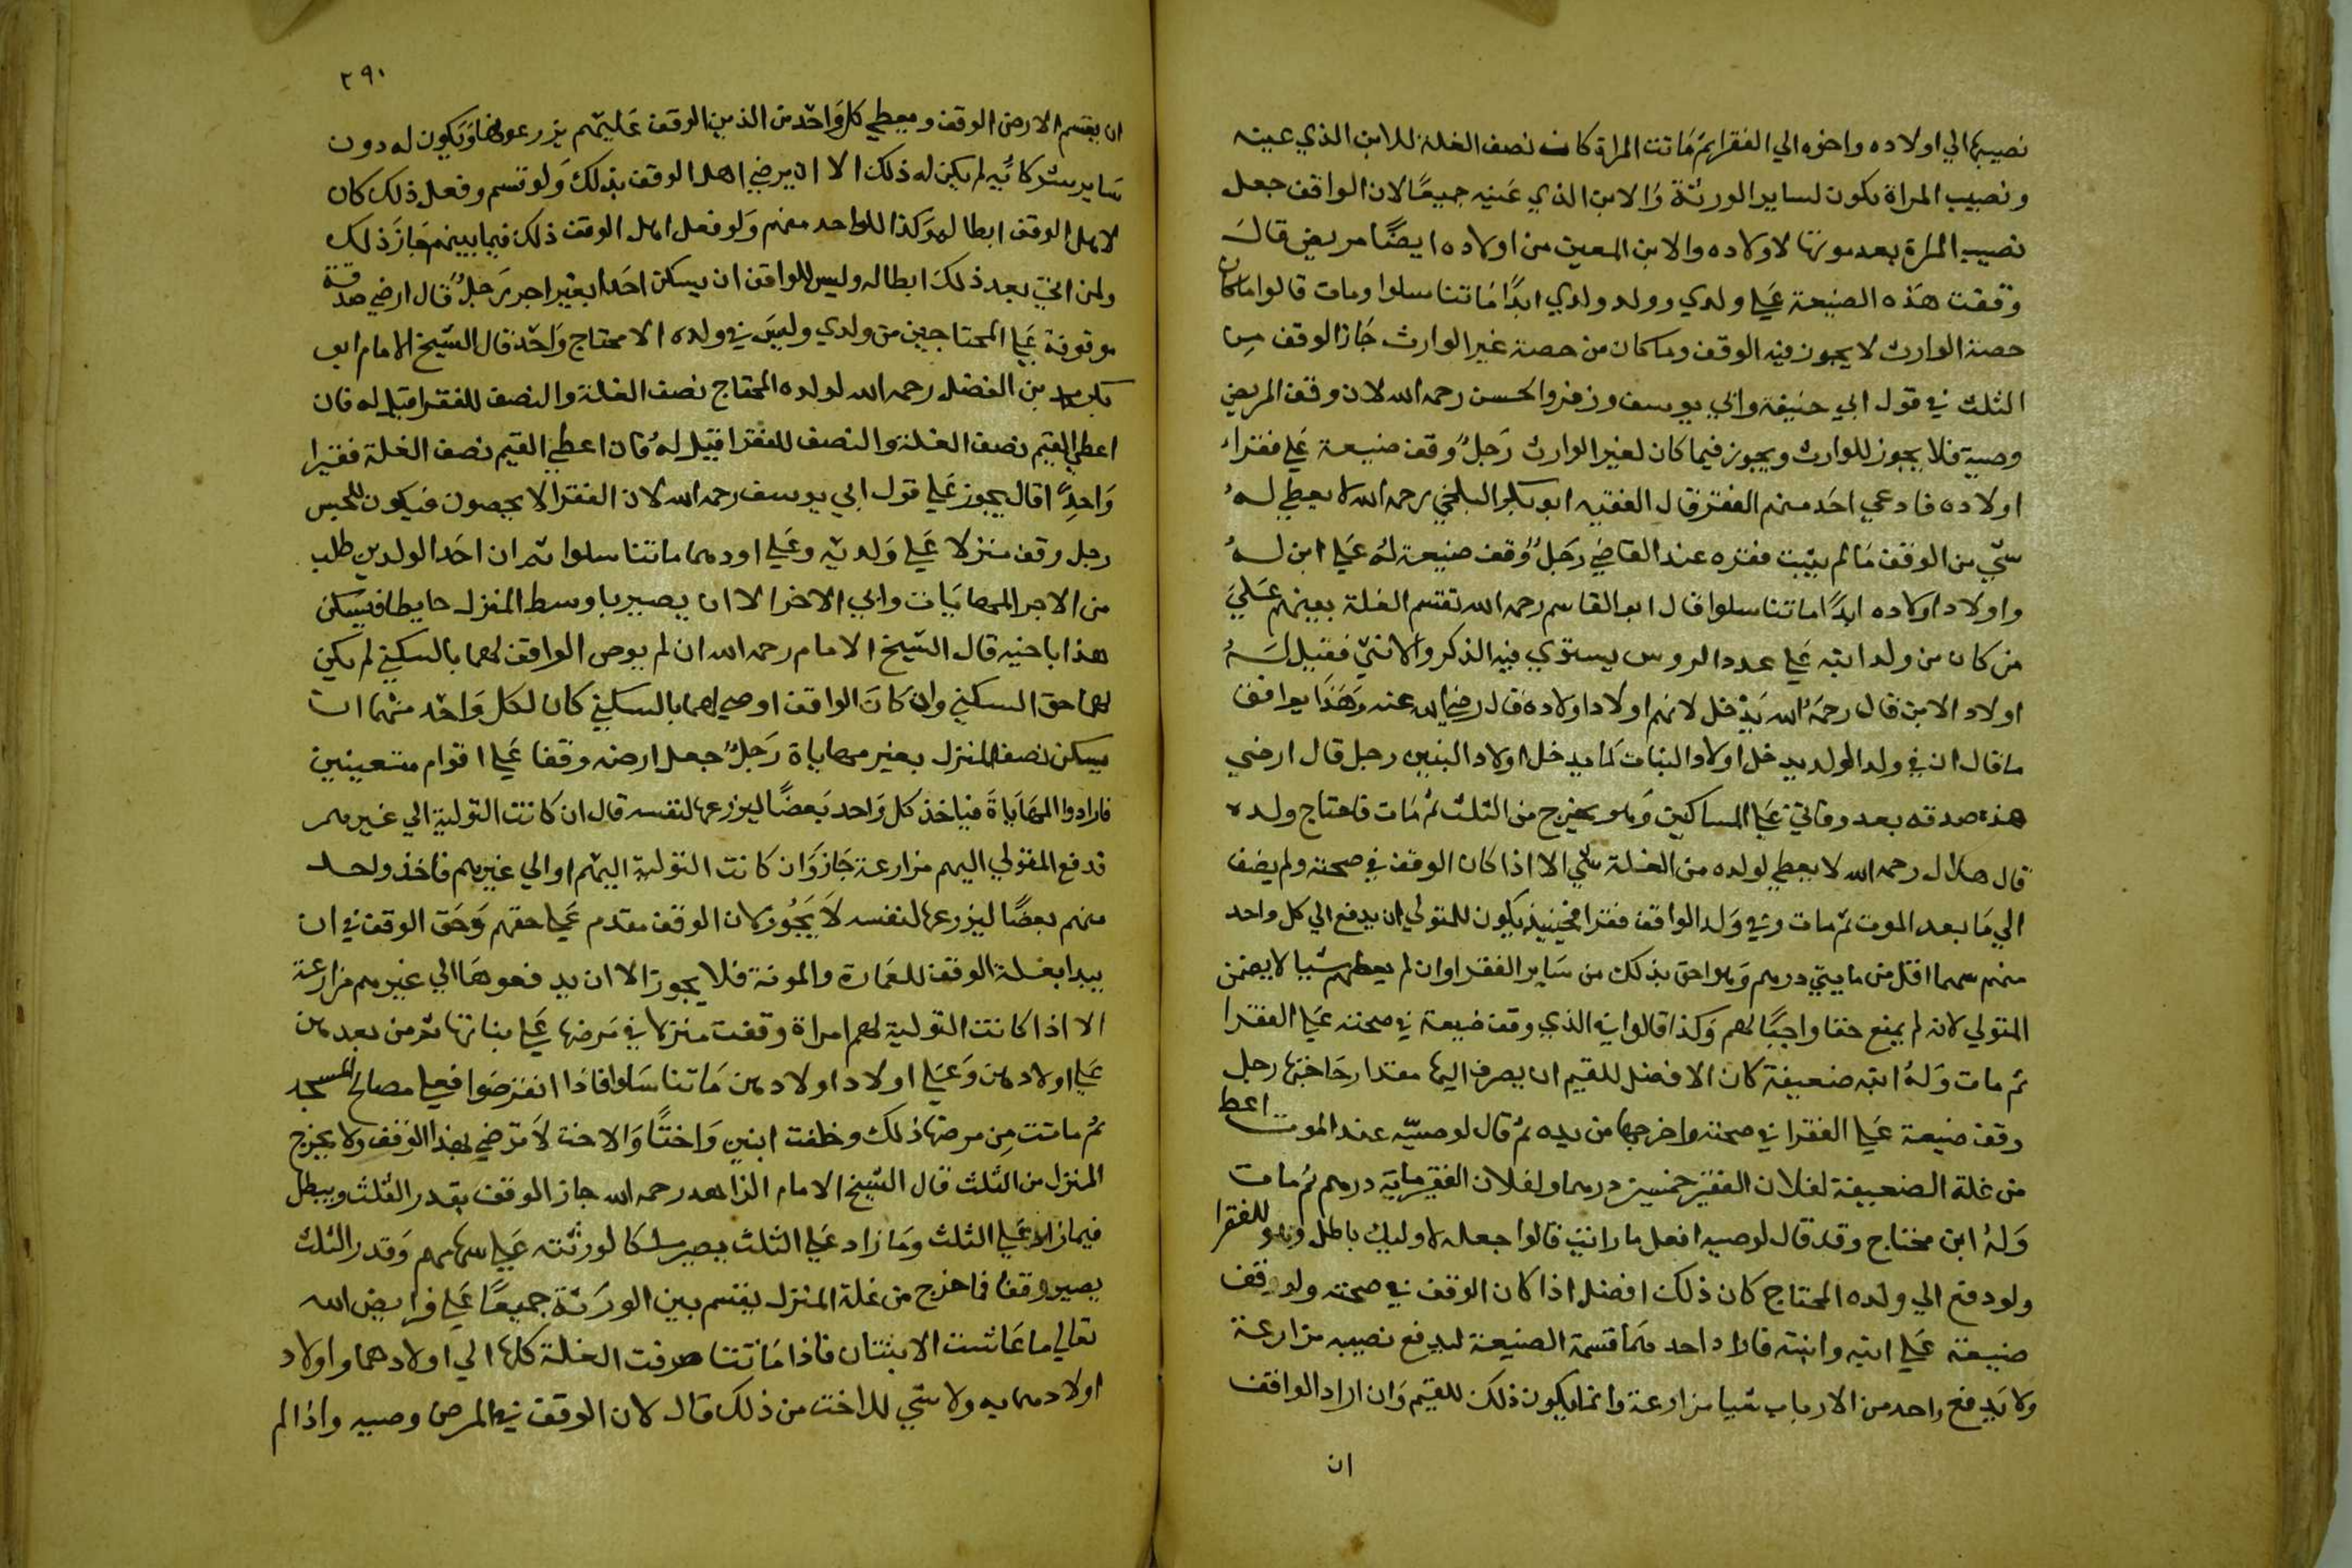 نصيبها الي اولاده واخوه الي الفقرا ثم ماتت المراة كانت نصف الغلة للابن الذي عينه
ونصيب المراة يكون لساير الورثة والابن الذي عينه جميعًا لان الواقف جعل
نصيب المراة بعد موتها لاولاده والابن المعين من اولاده ايضًا مريض قال
وقفت هذه الضيعة علي ولدي وولد ولدي ابدًا ما تناسلوا ومات قالوا ما كان
حصة الوارث لا يجوز فيه الوقف وما كان من حصة غير الوارث جاز الوقف من
الثلث في قول ابي حنيفة وابي يوسف وزفر والحسن رحمه الله لان وقف المريض
وصية فلا يجوز للوارث ويجوز فيما كان لغير الوارث رجلٌ وقف ضيعة علي فقراء
اولاده فادعي احد منهم الفقر قال الفقيه ابو بكر البلخي رحمه الله لا يعطي له
شي من الوقف ما لم يثبت فقره عند القاضي رجلٌ وقف ضيعة له علي ابن له
واولاد اولاده ابدًا ما تناسلوا قال ابو القاسم رحمه الله تقسم الغلة بينهم علي
من كان من ولد ابنه علي عدد الروس يستوي فيه الذكر والانثي فقيل له
اولاد الابن قال رحمه الله يدخل لانهم اولاد اولاده قال رضي الله عنه وهذا يوافق
ما قال ان في ولد الولد يدخل اولاد البنات كما يدخل اولاد البنين رجل قال ارضي
هذه صدقه بعد وفاتي علي المساكين وهو يخرج من الثلث ثم مات فاحتاج ولده
قال هلال رحمه الله لا يعطي لولده من الغلة شي الا اذا كان الوقف في صحته ولم يضف
الي ما بعد الموت ثم مات وفي ولد الواقف فقرا فحينيذ يكون للمتولي ان يدفع الي كل واحد
منهم سهما اقل من مايتي درهم وهو احق بذلك من ساير الفقرا وان لم يعطهم شيا لا يضمن
المتولي لانه لم يمنع حقا واجبًا لهم وكذا قالوا في الذي وقف ضيعة في صحته علي الفقرا
ثم مات وله ابنه ضعيفة كان الافضل للقيم ان يصرف اليها مقدار حاجتها رجل
وقف ضيعة علي الفقرا في صحته واخرجها من يده ثم قال لوصيّه عند الموت اعط
من غلة الضيعة لفلان الفقير خمسين درهما ولفلان الفقير ماية درهم ثم مات
وله ابن محتاج وقد قال لوصيه افعل ما رايت قالوا جعله لاوليك باطل وهو للفقرا
ولو دفع الي ولده المحتاج كان ذلك افضل اذا كان الوقف في صحته ولو وقف
ضيعة علي ابنه وابنته فاراد احدهما قسمة الضيعة ليدفع نصيبه مزارعة
ولا يدفع واحد من الارباب شيا مزارعة وانما يكون ذلك للقيم وان اراد الواقف
ان
٢٩٠
ان يقسم الارض الوقف ويعطي كل واحد من الذين الوقف عليهم يزرعونها ويكون له دون
ساير شركائيه لم يكن له ذلك الا ان يرضي اهل الوقف بذلك ولو قسم وفعل ذلك كان
لاهل الوقف ابطاله وكذا للواحد منهم ولو فعل اهل الوقف ذلك فيما بينهم جاز ذلك
ولمن ابي بعد ذلك ابطاله وليس للواقف ان يسكن احدا بغير اجر رجلٌ قال ارضي صدقة
موقوفة علي المحتاجين من ولدي وليس في ولده الا محتاج واحد قال الشيخ الامام ابو
بكر محمد بن الفضل رحمه الله لولده المحتاج نصف الغلة والنصف للفقرا قيل له فان
اعطي القيم نصف الغلة والنصف للفقرا قيل له فان اعطي القيم نصف الغلة فقيرا
واحدًا قال يجوز علي قول ابي يوسف رحمه الله لان الفقرا لا يحصون فيكون للجنس
رجل وقف منزلا علي ولديه وعلي اودهما ما تناسلوا ثم ان احد الولدين طلب
من الاخر المهايات وابي الاخر الا ان يصير باوسط المنزل حايطا فيسكن
هذا باحيه قال الشيخ الامام رحمه الله ان لم يوص الواقف لهما بالسكني لم يكن
لهما حق السكني وان كان الواقف اوصي لهما بالسكني كان لكل واحد منهما ان
يسكن نصف المنزل بغير مهاياة رجلٌ جعل ارضه وقفا علي اقوام متعينين
فارادوا المهاياة فياخذ كل واحد بعضًا ليزرعها لنفسه قال ان كانت التولية الي غيرهم
فدفع المتولي اليهم مزارعة جاز وان كانت التولية اليهم او الي غيرهم فاخذ واحد
منهم بعضًا ليزرعها لنفسه لا يجوز لان الوقف مقدم علي حقهم وحق الوقف في ان
يبدا بغلة الوقف للعمارة والمونة فلا يجوز الا ان يدفعوها الي غيرهم مزارعة
الا اذا كانت التولية لهم امراة وقفت منزلا في مرضها علي بناتها ثم من بعدهن
علي اولادهن وعلي اولاد اولادهن ما تناسلوا فاذا انقرضوا فعلي مصالح المسجد
ثم ماتت من مرضها ذلك وخلفت ابنين واختًا والاخت لا ترضي بهذا الوقف ولا يخرج
المنزل من الثلث قال الشيخ الامام الزاهد رحمه الله جاز الوقف بقدر الثلث ويبطل
فيما زاد علي الثلث وما زاد علي الثلث يصير ملكا لورثته علي سهامهم وقدر الثلث
يصير وقفا فما خرج من غلة المنزل يقسم بين الورثة جميعًا علي فرايض الله
تعالي ما عاشت الابنتان فاذا ماتتا صرفت الغلة كلها الي اولادهما واولاد
اولادهما به ولا شي للاخت من ذلك قال لان الوقف في المرض وصيه واذا لم